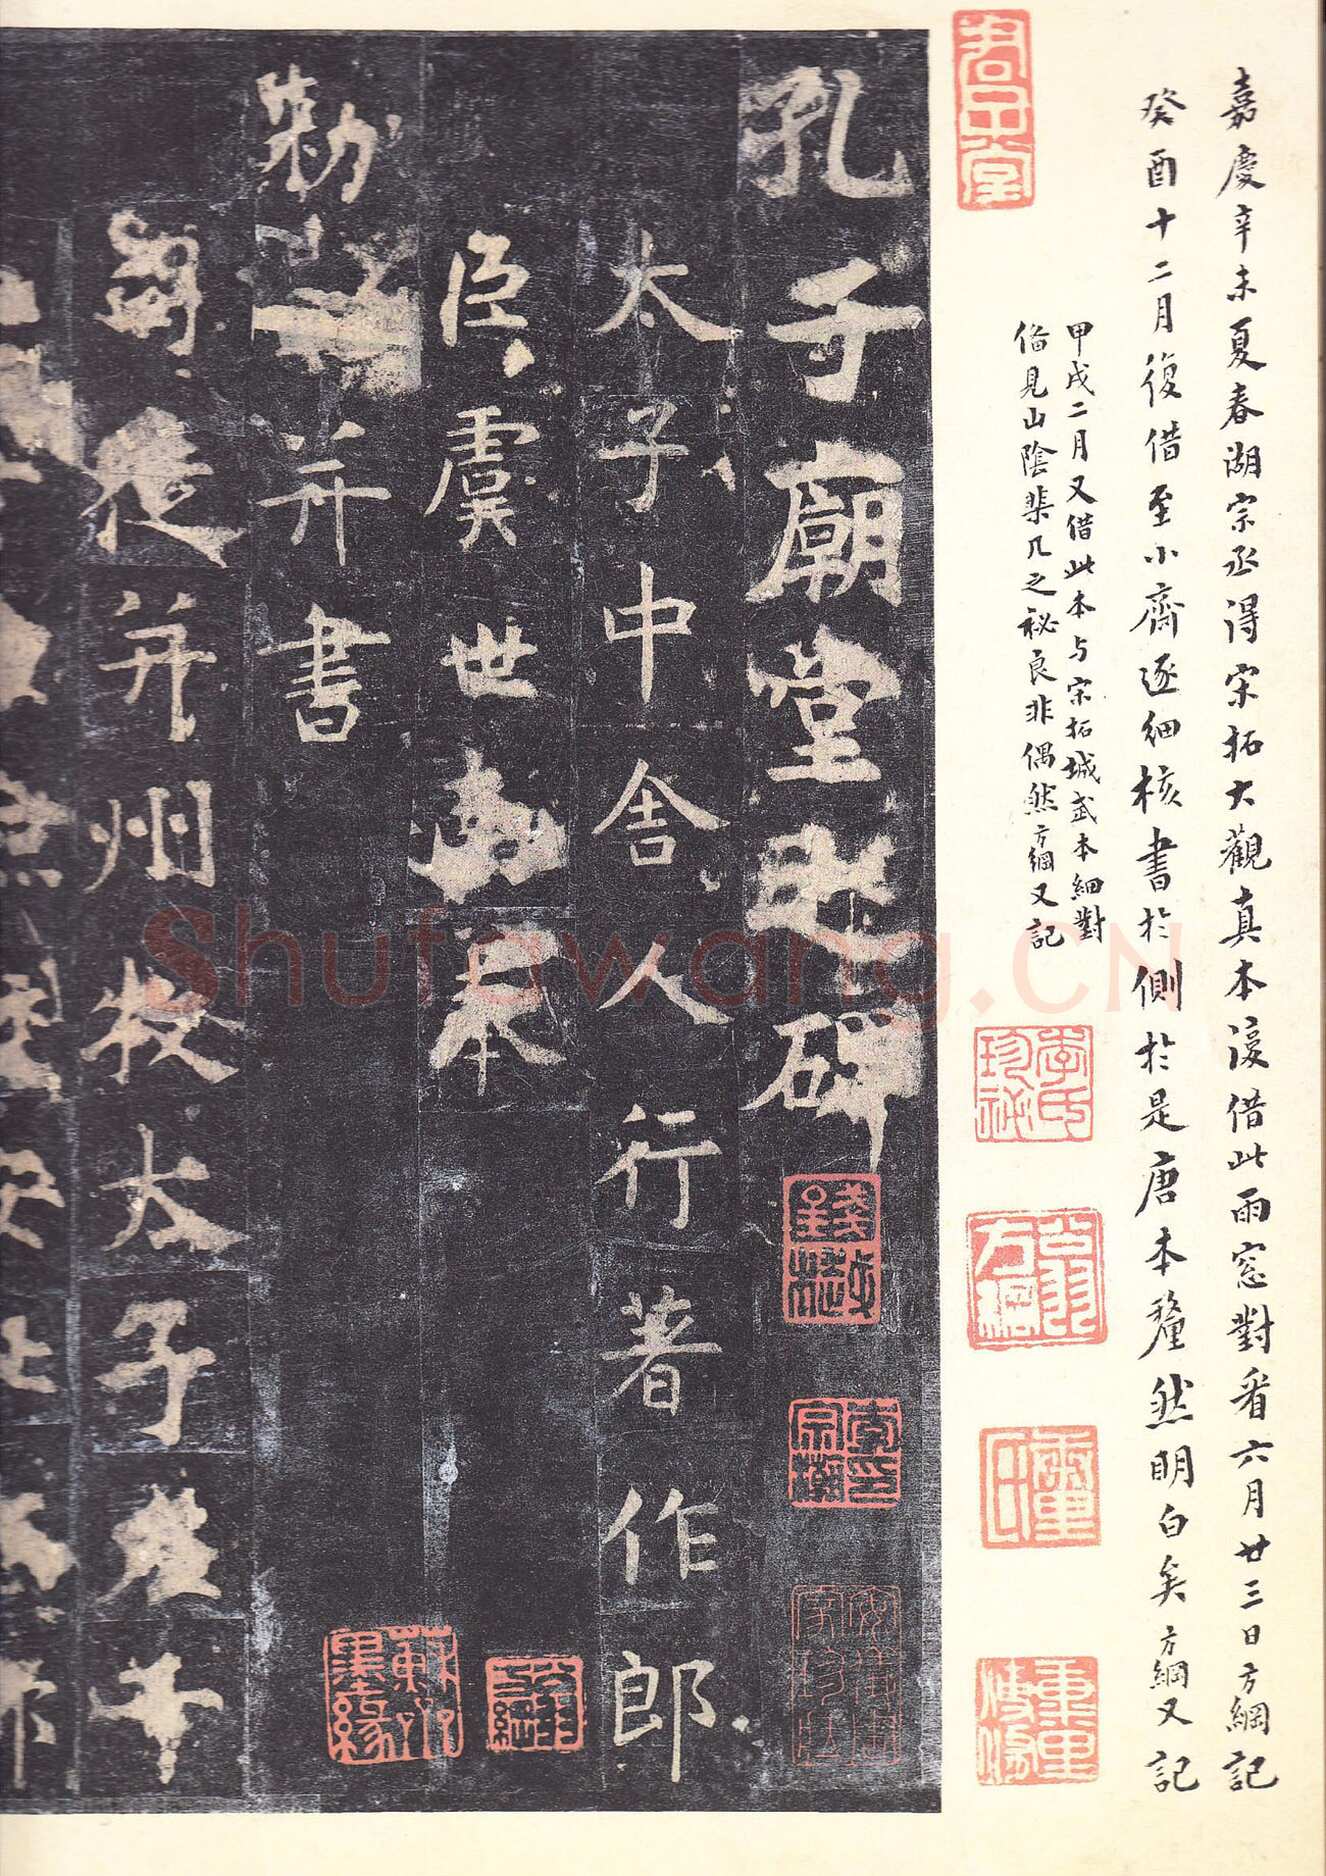 嘉慶辛未夏春湖宗丞得宋拓大觀真本復借此雨窓對看六月廿三日方綱記
癸酉十二月復借至小齋逐細核書於側於是唐本釐然明白矣方綱又記
甲戌二月又借此本与宋拓城武本細對
俻見山陰棐几之祕良非偶然方綱又記
孔子廟堂之碑
太子中舍人行著作郎
臣虞世南奉
勑
并書
司徒并州牧太子左千
李氏珍祕
翁方綱
蘇齋墨緣
Shufawang.CN